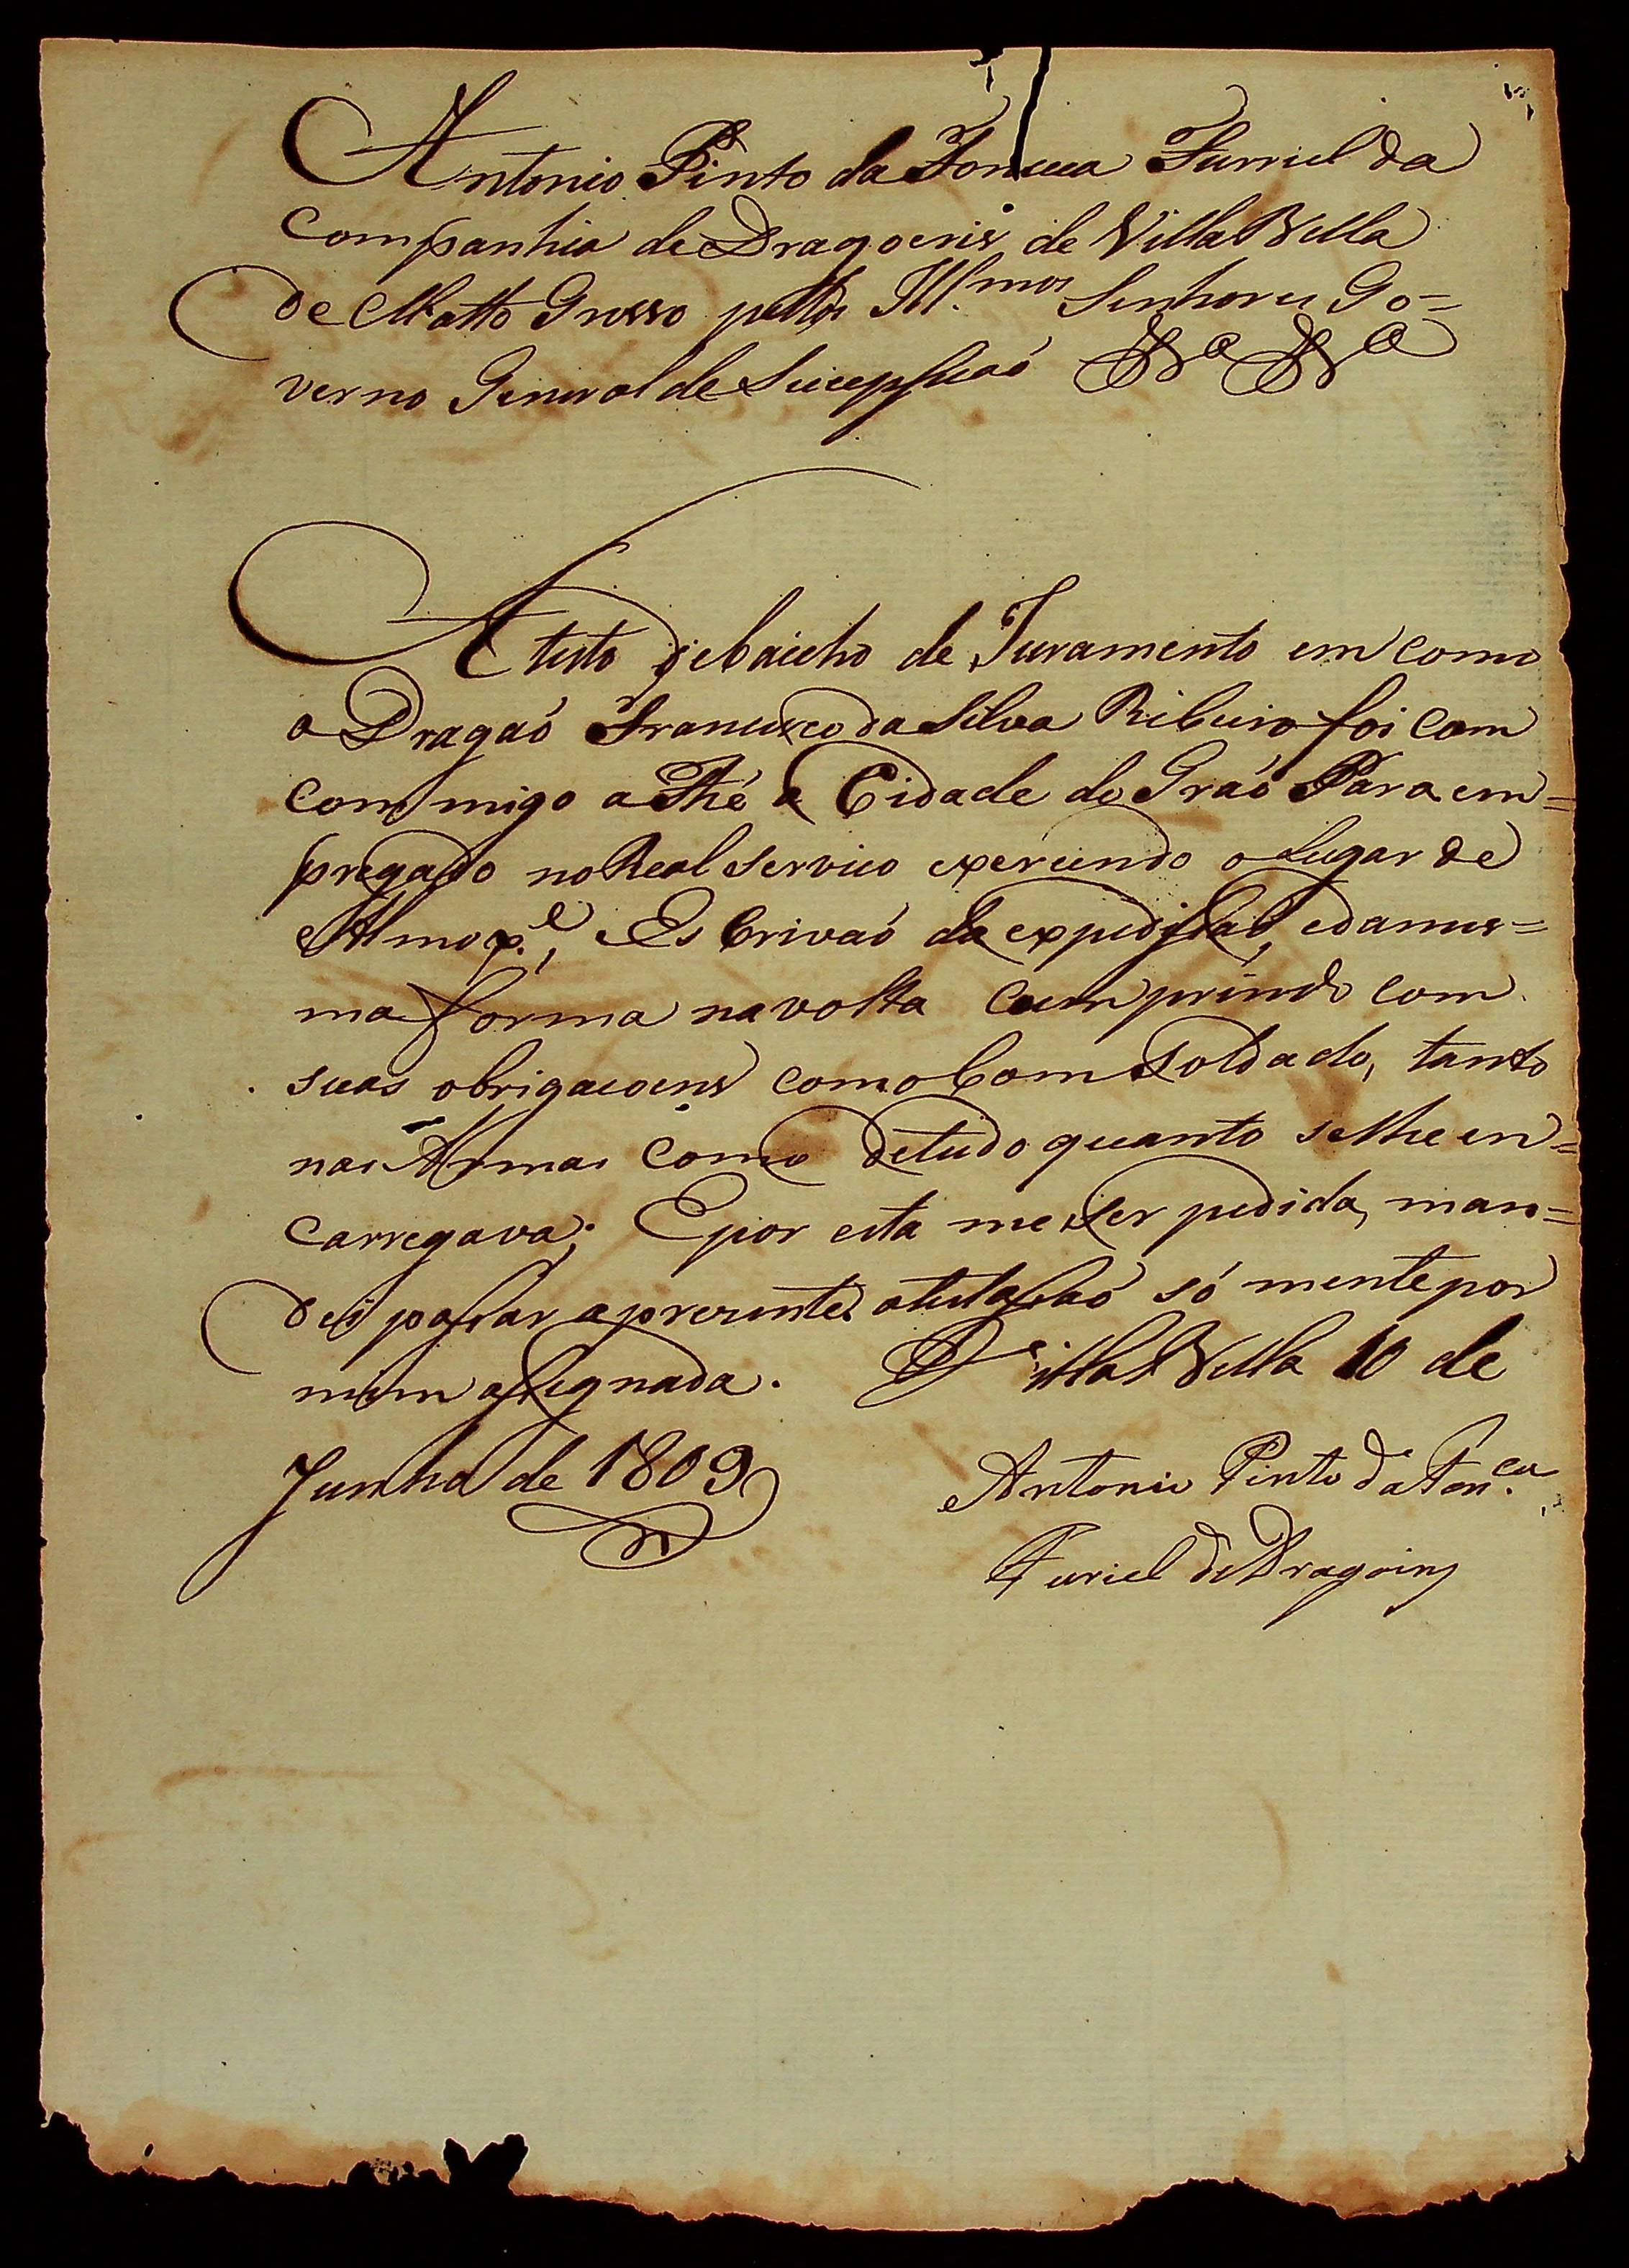 Antonio Pinto da Fonceca Furriel da
Companhia de Dragoens de Villa Bella
de Matto Grosso pellos Ill.mos Senhores Go=
verno General de Sucepssaó
Atesto debaicho de Juramento em como
o Dragaó Francisco da Silva Ribeiro foi com
commigo a Thé a Cidade do Graó Para em=
pregado no Real Servico exercendo o Lugar de
Almox.e, Escrivaó da expedissaó, edames=
ma forma navolta cumprindo com
suas obrigacoens como bom Soldado, tanto
nas Armas como detudo quanto selhe en=
carregava. E por esta me ser pedida, man=
dei passar aprezente atestassaó só mente por
mim assignada. Villa Bella 10 de
Junho de 1809
Antonio Pinto da Fon.ca
Furiel de Dragoins